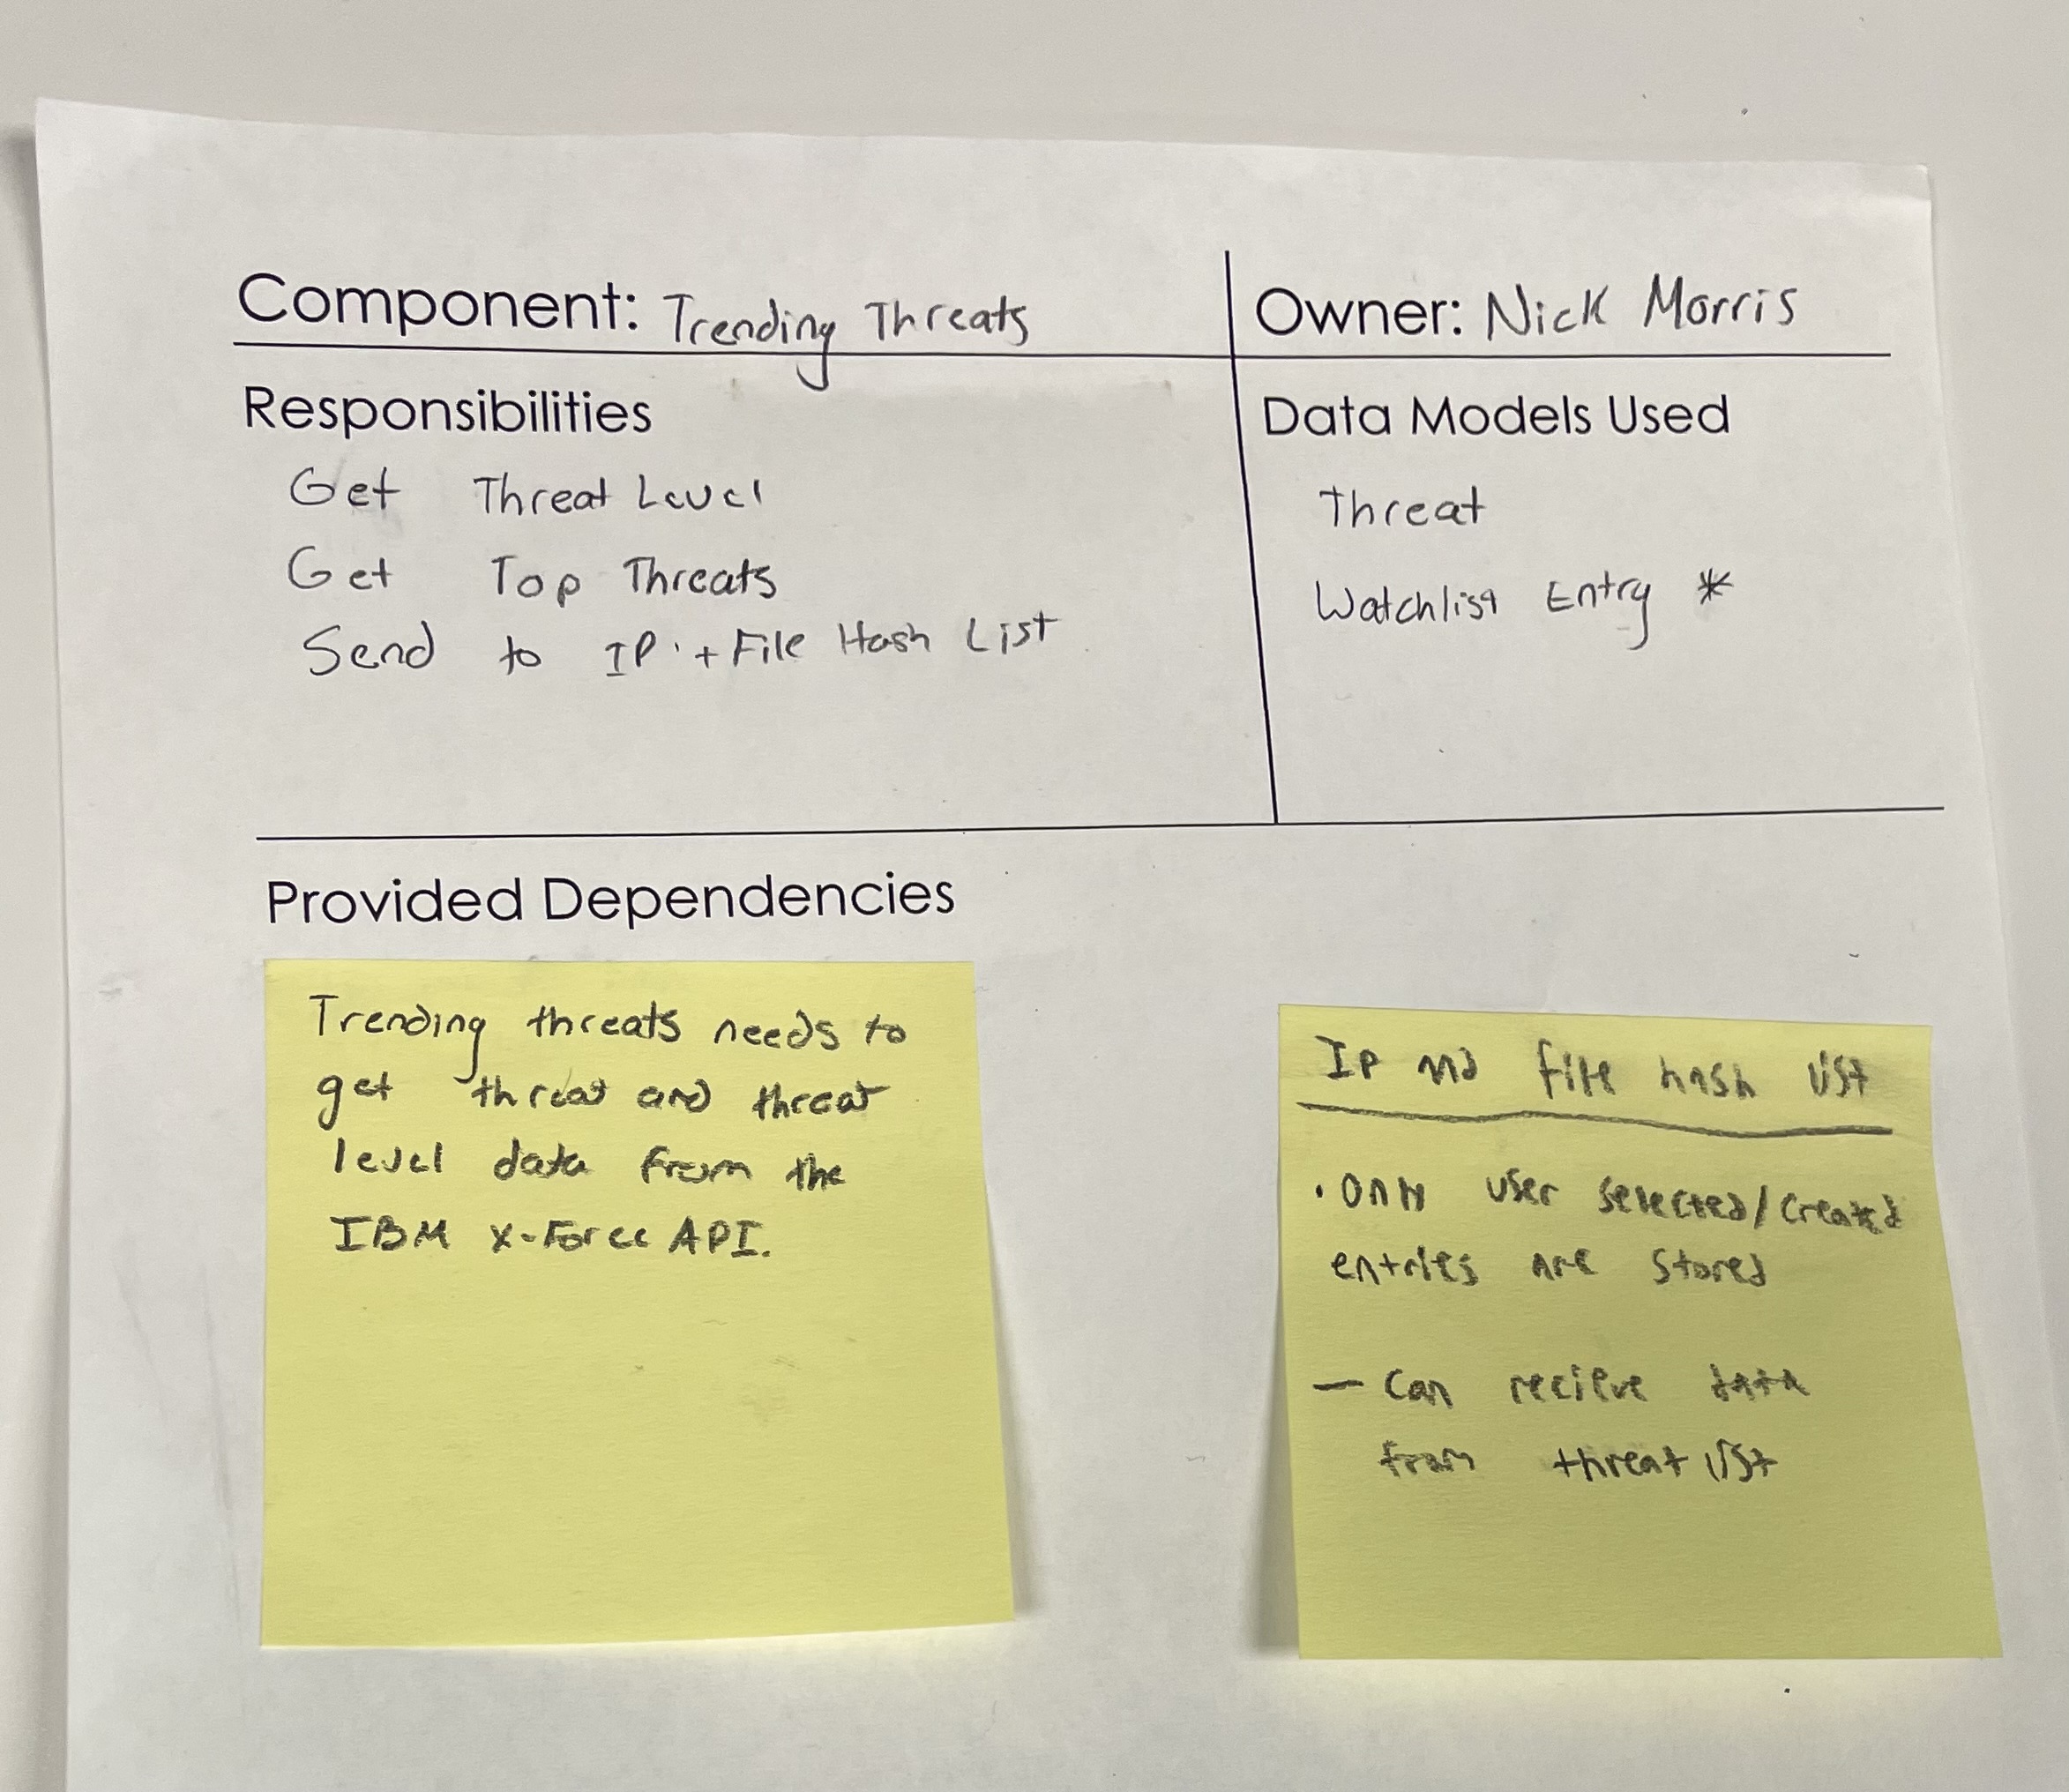 Component: Trending Threats
Owner: Nick Morris
Responsibilities
Get Threat Level
Get Top Threats
Send to IP + File Hash List
Data Models Used
Threat
Watchlist Entry *
Provided Dependencies
Trending threats needs to
get threat and threat
level data from the
IBM X-Force API.
IP and file hash list
• Only user selected/created
entries are stored
— Can recieve data
from threat list